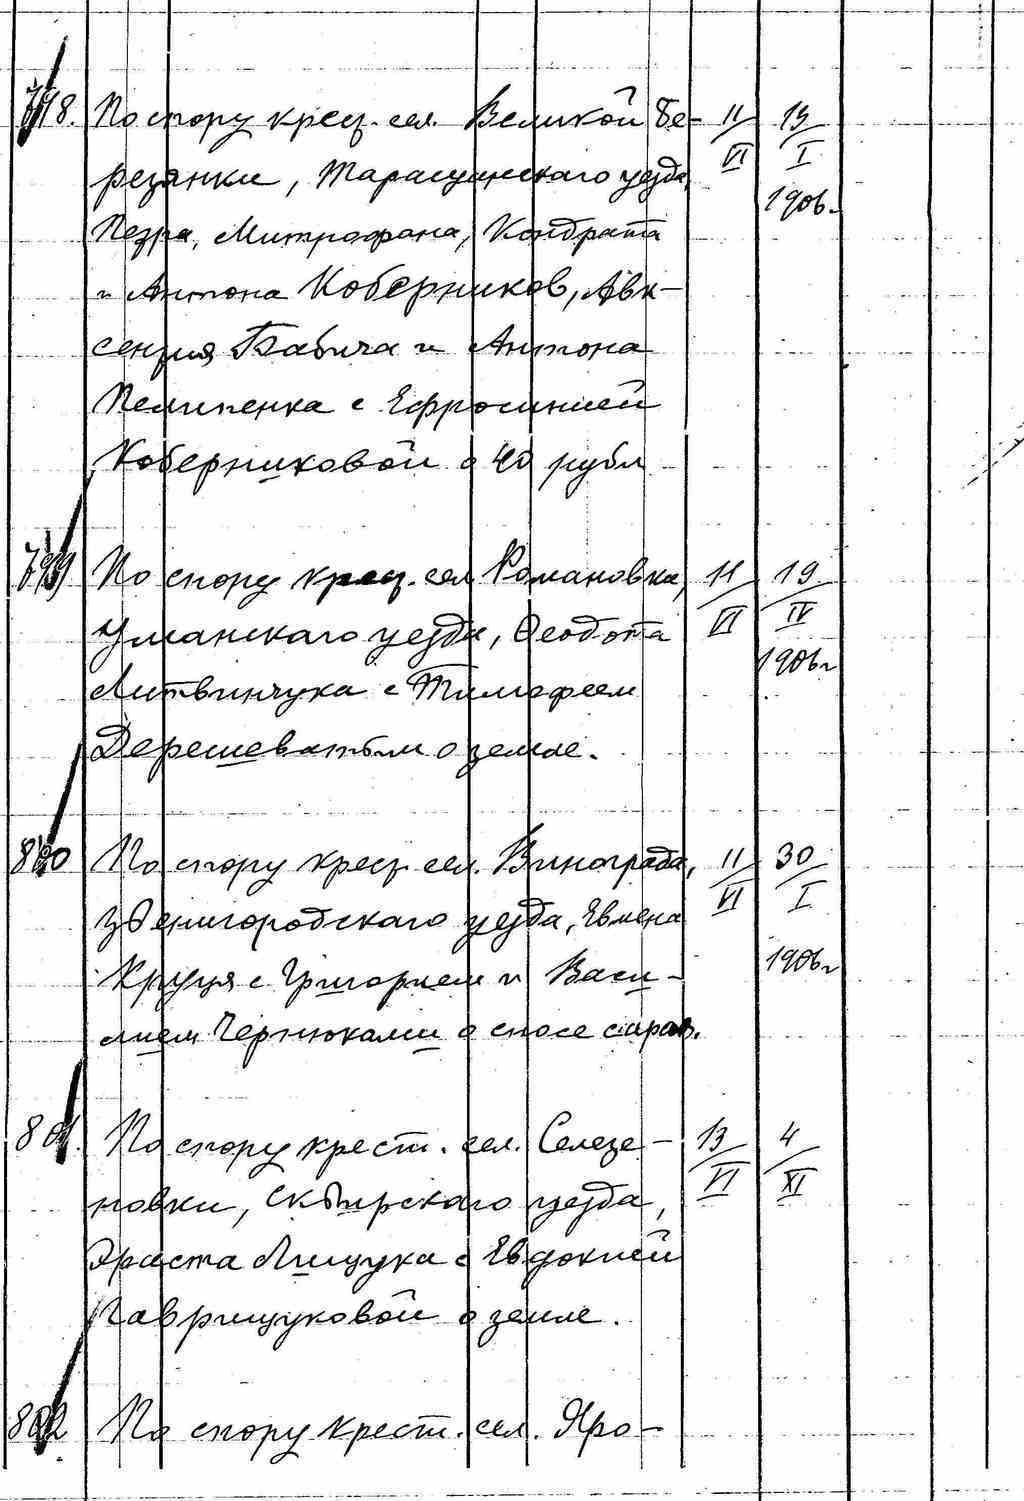 798. По спору крест. сел. Великой Бе- 11/VI 13/I
резянки, Таращанскаго уезда, 1906.
Петра, Митрофана, Кондрата
и Антона Коберников, Авк-
сентия Бабича и Антона
Пелипенка с Ефросинией
Коберниковой о 40 рубл
799 По спору крест. сел Романовка, 11/VI 19/IV
Уманскаго уезда, Феодота 1906г
Литвинчука с Тимофеем
Дерешеватым о земле.
800 По спору крест. сел. Винограда, 11/VI 30/I
Звенигородскаго уезда, Евмена
Круця с Григорием и Васи- 1906г
лием Чернюками о сносе сарая.
801. По спору крест. сел. Селезе- 13/VI 4/XI
новки, Сквирскаго уезда,
Эраста Лищука с Евдокией
Гаврищуковой о земле.
802 По спору крест. сел. Яро-